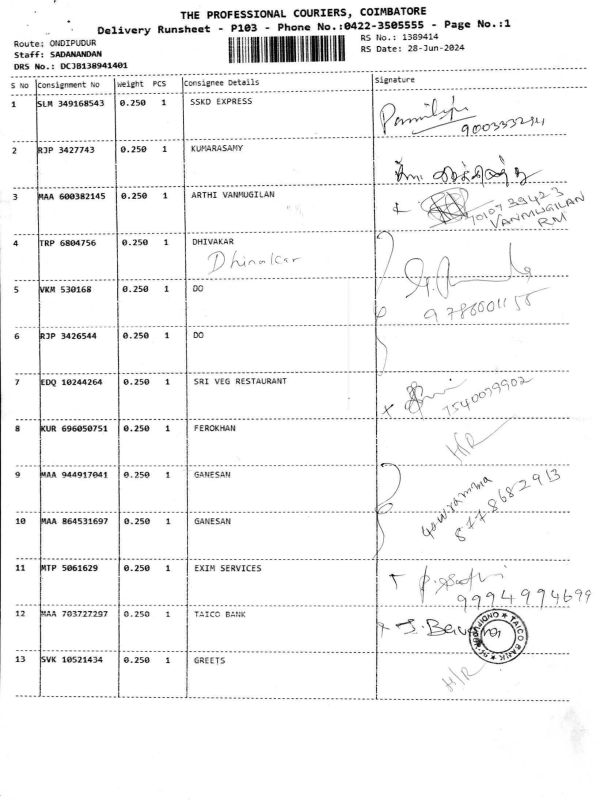 THE PROFESSIONAL COURIERS, COIMBATORE
Delivery Runsheet - P103 - Phone No.:0422-3505555 - Page No.:1
Route: ONDIPUDUR
RS No.: 1389414
Staff: SADANANDAN
RS Date: 28-Jun-2024
DRS No.: DCJB138941401
S No Consignment No Weight PCS Consignee Details Signature
1 SLM 349168543 0.250 1 SSKD EXPRESS
2 RJP 3427743 0.250 1 KUMARASAMY
3 MAA 600382145 0.250 1 ARTHI VANMUGILAN
VANMUGILAN
RM
4 TRP 6804756 0.250 1 DHIVAKAR
Dhinakar
5 VKM 530168 0.250 1 DO
6 RJP 3426544 0.250 1 DO
7 EDQ 10244264 0.250 1 SRI VEG RESTAURANT
7540079902
8 KUR 696050751 0.250 1 FEROKHAN
H/R
9 MAA 944917041 0.250 1 GANESAN
8778682913
10 MAA 864531697 0.250 1 GANESAN
11 MTP 5061629 0.250 1 EXIM SERVICES
9994994699
12 MAA 703727297 0.250 1 TAICO BANK
TAICO BANK
13 SVK 10521434 0.250 1 GREETS
H/R